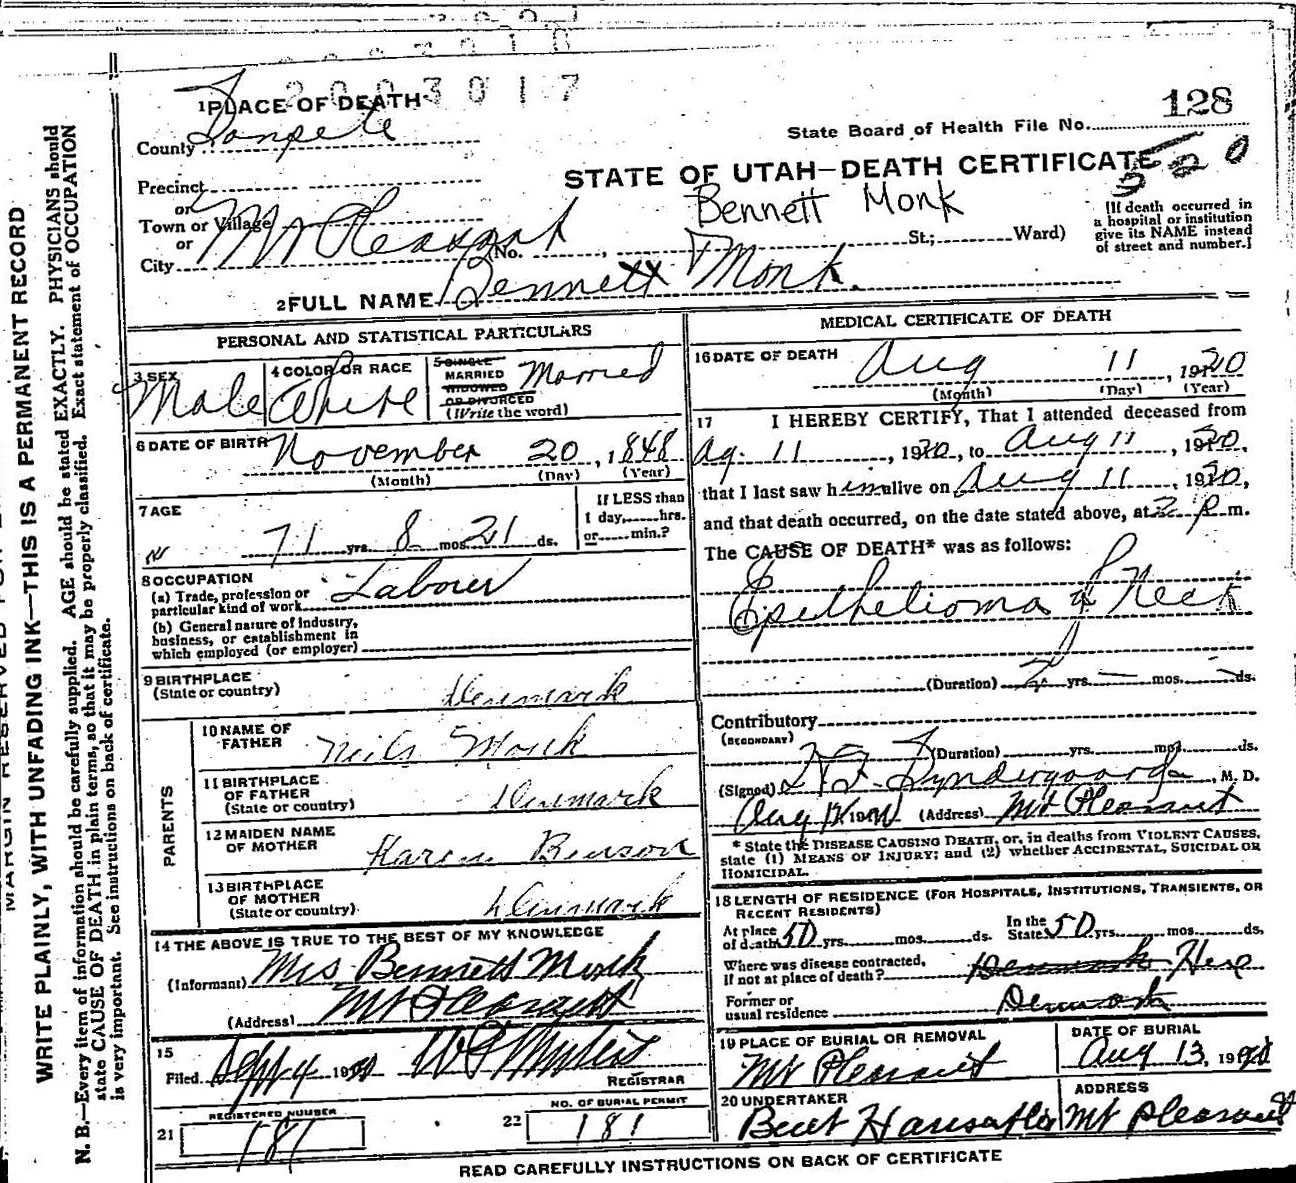 2003017
1 PLACE OF DEATH
County Sanpete
128
State Board of Health File No.
STATE OF UTAH—DEATH CERTIFICATE
520
Precinct
or
Town or Village Mt Pleasant
or
City
(No. St.; Ward)
Bennett Monk
[If death occurred in
a hospital or institution
give its NAME instead
of street and number.]
2 FULL NAME Bennett Monk.
PERSONAL AND STATISTICAL PARTICULARS
3 SEX Male
4 COLOR OR RACE White
5 SINGLE
MARRIED
WIDOWED
OR DIVORCED
(Write the word) Married
6 DATE OF BIRTH November 20, 1848
(Month) (Day) (Year)
7 AGE
71 yrs. 8 mos. 21 ds.
If LESS than
1 day, hrs.
or min.?
8 OCCUPATION
(a) Trade, profession or
particular kind of work Laborer
(b) General nature of industry,
business, or establishment in
which employed (or employer)
9 BIRTHPLACE
(State or country) Denmark
PARENTS
10 NAME OF
FATHER Neils Monk
11 BIRTHPLACE
OF FATHER
(State or country) Denmark
12 MAIDEN NAME
OF MOTHER Karen Benson
13 BIRTHPLACE
OF MOTHER
(State or country) Denmark
14 THE ABOVE IS TRUE TO THE BEST OF MY KNOWLEDGE
(Informant) Mrs Bennett Monk
(Address) Mt Pleasant
15
Filed Sept 4 19
REGISTRAR
REGISTERED NUMBER
21 181
NO. OF BURIAL PERMIT
22 181
MEDICAL CERTIFICATE OF DEATH
16 DATE OF DEATH Aug 11, 1920
(Month) (Day) (Year)
17 I HEREBY CERTIFY, That I attended deceased from
Ag. 11, 1920, to Aug 11, 1920,
that I last saw h im alive on Aug 11, 1920,
and that death occurred, on the date stated above, at 2 P m.
The CAUSE OF DEATH* was as follows:
Epithelioma of Neck
(Duration) 2 yrs. — mos. — ds.
Contributory
(SECONDARY)
(Duration) yrs. mos. ds.
(Signed) , M. D.
Aug 19 (Address) Mt Pleasant
* State the DISEASE CAUSING DEATH, or, in deaths from VIOLENT CAUSES,
state (1) MEANS OF INJURY; and (2) whether ACCIDENTAL, SUICIDAL OR
HOMICIDAL.
18 LENGTH OF RESIDENCE (FOR HOSPITALS, INSTITUTIONS, TRANSIENTS, OR
RECENT RESIDENTS)
At place
of death 50 yrs. mos. ds.
In the
State 50 yrs. mos. ds.
Where was disease contracted,
if not at place of death? Denmark Here
Former or
usual residence Denmark
19 PLACE OF BURIAL OR REMOVAL
Mt Pleasant
DATE OF BURIAL
Aug 13, 19
20 UNDERTAKER
ADDRESS
Mt Pleasant
READ CAREFULLY INSTRUCTIONS ON BACK OF CERTIFICATE
WRITE PLAINLY, WITH UNFADING INK—THIS IS A PERMANENT RECORD
N. B.—Every item of information should be carefully supplied. AGE should be stated EXACTLY. PHYSICIANS should
state CAUSE OF DEATH in plain terms, so that it may be properly classified. Exact statement of OCCUPATION
is very important. See instructions on back of certificate.